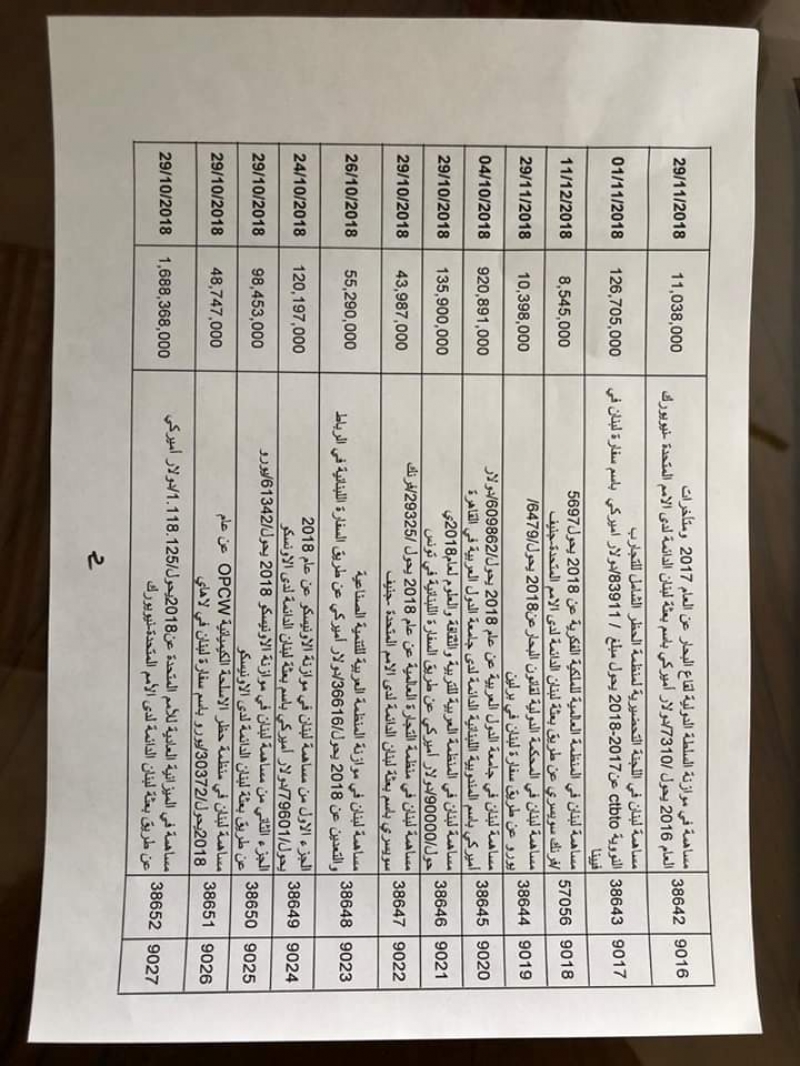 9016 38642 مساهمة في موازنة السلطة الدولية لقاع البحار عن العام 2017 ومتأخرات 11,038,000 29/11/2018
العام 2016 يحول /7310/دولار أميركي باسم بعثة لبنان الدائمة لدى الامم المتحدة -نيويورك
9017 38643 مساهمة لبنان في اللجنة التحضيرية لمنظمة الحظر الشامل للتجارب 126,705,000 01/11/2018
النووية ctbto عن2017-2018 يحول مبلغ /83911/دولار اميركي باسم سفارة لبنان في
فيينا
9018 57056 مساهمة لبنان في المنظمة العالمية للملكية الفكرية عن 2018 يحول5697 8,545,000 11/12/2018
/فرنك سويسري عن طريق بعثة لبنان الدائمة لدى الامم المتحدة-جنيف
9019 38644 مساهمة لبنان في المحكمة الدولية لقانون البحار عن2018 يحول/6479/ 10,398,000 29/11/2018
يورو عن طريق سفارة لبنان في برلين
9020 38645 مساهمة لبنان في جامعة الدول العربية عن عام 2018 يحول/609862/دولار 920,891,000 04/10/2018
أميركي باسم المندوبية اللبنانية الدائمة لدى جامعة الدول العربية في القاهرة
9021 38646 مساهمة لبنان في المنظمة العربية للتربية والثقافة والعلوم لعام2018ي 135,900,000 29/10/2018
حول/90000/دولار أميركي عن طريق السفارة اللبنانية في تونس
9022 38647 مساهمة لبنان في منظمة التجارة العالمية عن عام 2018 يحول /29325/فرنك 43,987,000 29/10/2018
سويسري باسم بعثة لبنان الدائمة لدى الامم المتحدة -جنيف
9023 38648 مساهمة لبنان في موازنة المنظمة العربية للتنمية الصناعية 55,290,000 26/10/2018
والتعدين عن 2018 يحول/36616/دولار أميركي عن طريق السفارة اللبنانية في الرباط
9024 38649 الجزء الاول من مساهمة لبنان في موازنة الاونيسكو عن عام 2018 120,197,000 24/10/2018
يحول/79601/دولار أميركي باسم بعثة لبنان الدائمة لدى الاونسكو
9025 38650 الجزء الثاني من مساهمة لبنان في موازنة الاونيسكو 2018 يحول/61342/يورو 98,453,000 29/10/2018
عن طريق بعثة لبنان الدائمة لدى الاونيسكو
9026 38651 مساهمة لبنان في منظمة حظر الاسلحة الكيميائية OPCW عن عام 48,747,000 29/10/2018
2018يحول/30372/يورو باسم سفارة لبنان في لاهاي
9027 38652 مساهمة في الميزانية العادية للأمم المتحدة عن2018يحول/1.118.125/دولار أميركي 1,688,368,000 29/10/2018
عن طريق بعثة لبنان الدائمة لدى الأمم المتحدة-نيويورك